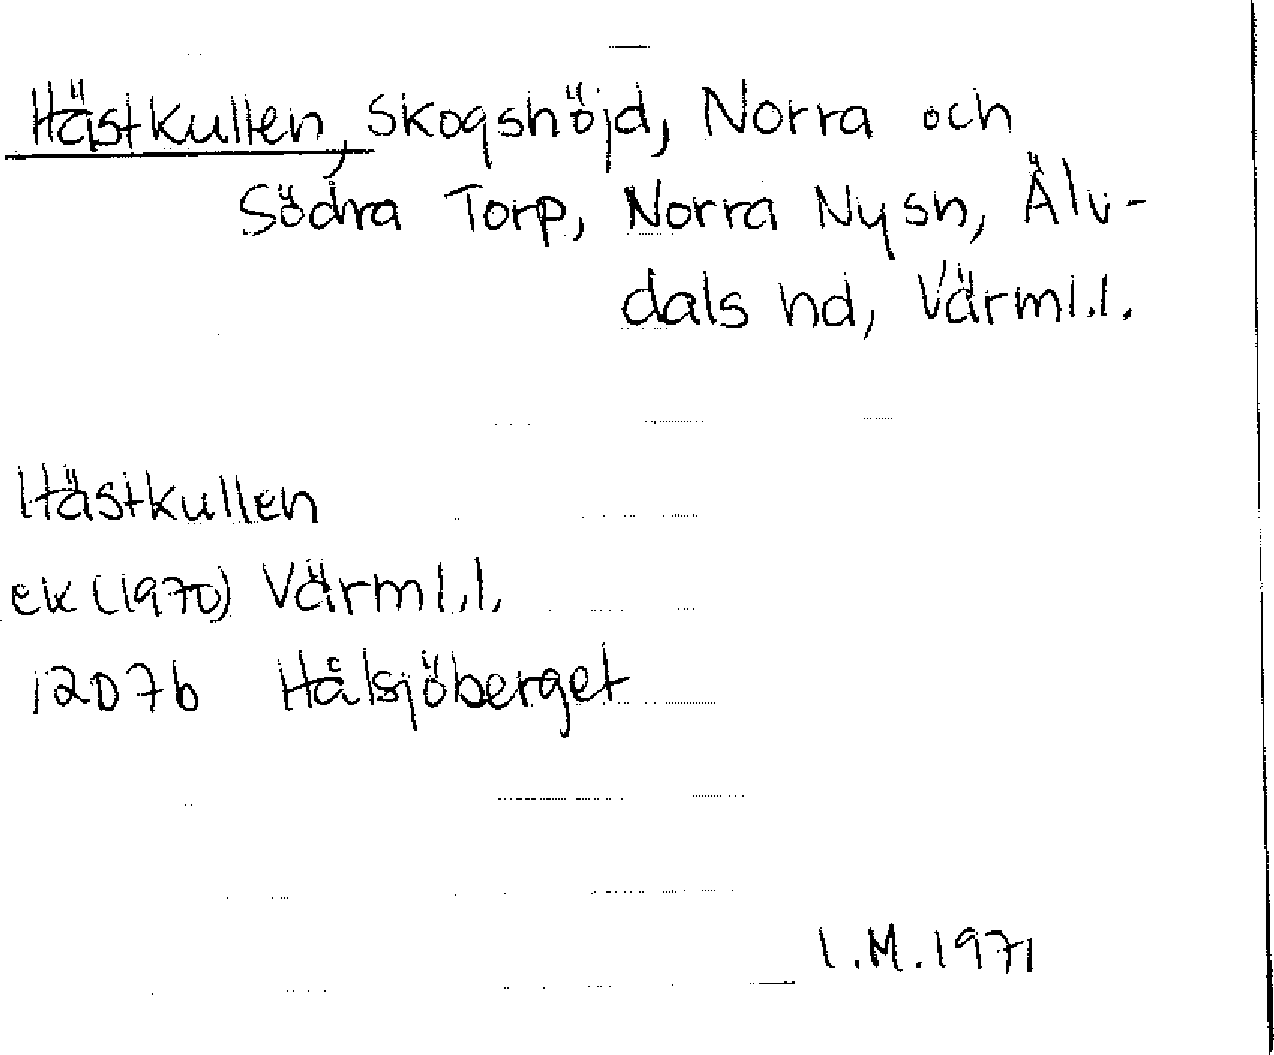 Hästkullen, Skogshöjd, Norra och
Södra Torp, Norra Ny sn, Älv-
dals hd, Värml.l.
Hästkullen
ek (1970) Värml.l.
12D7b Hålsjöberget
I.M.1971